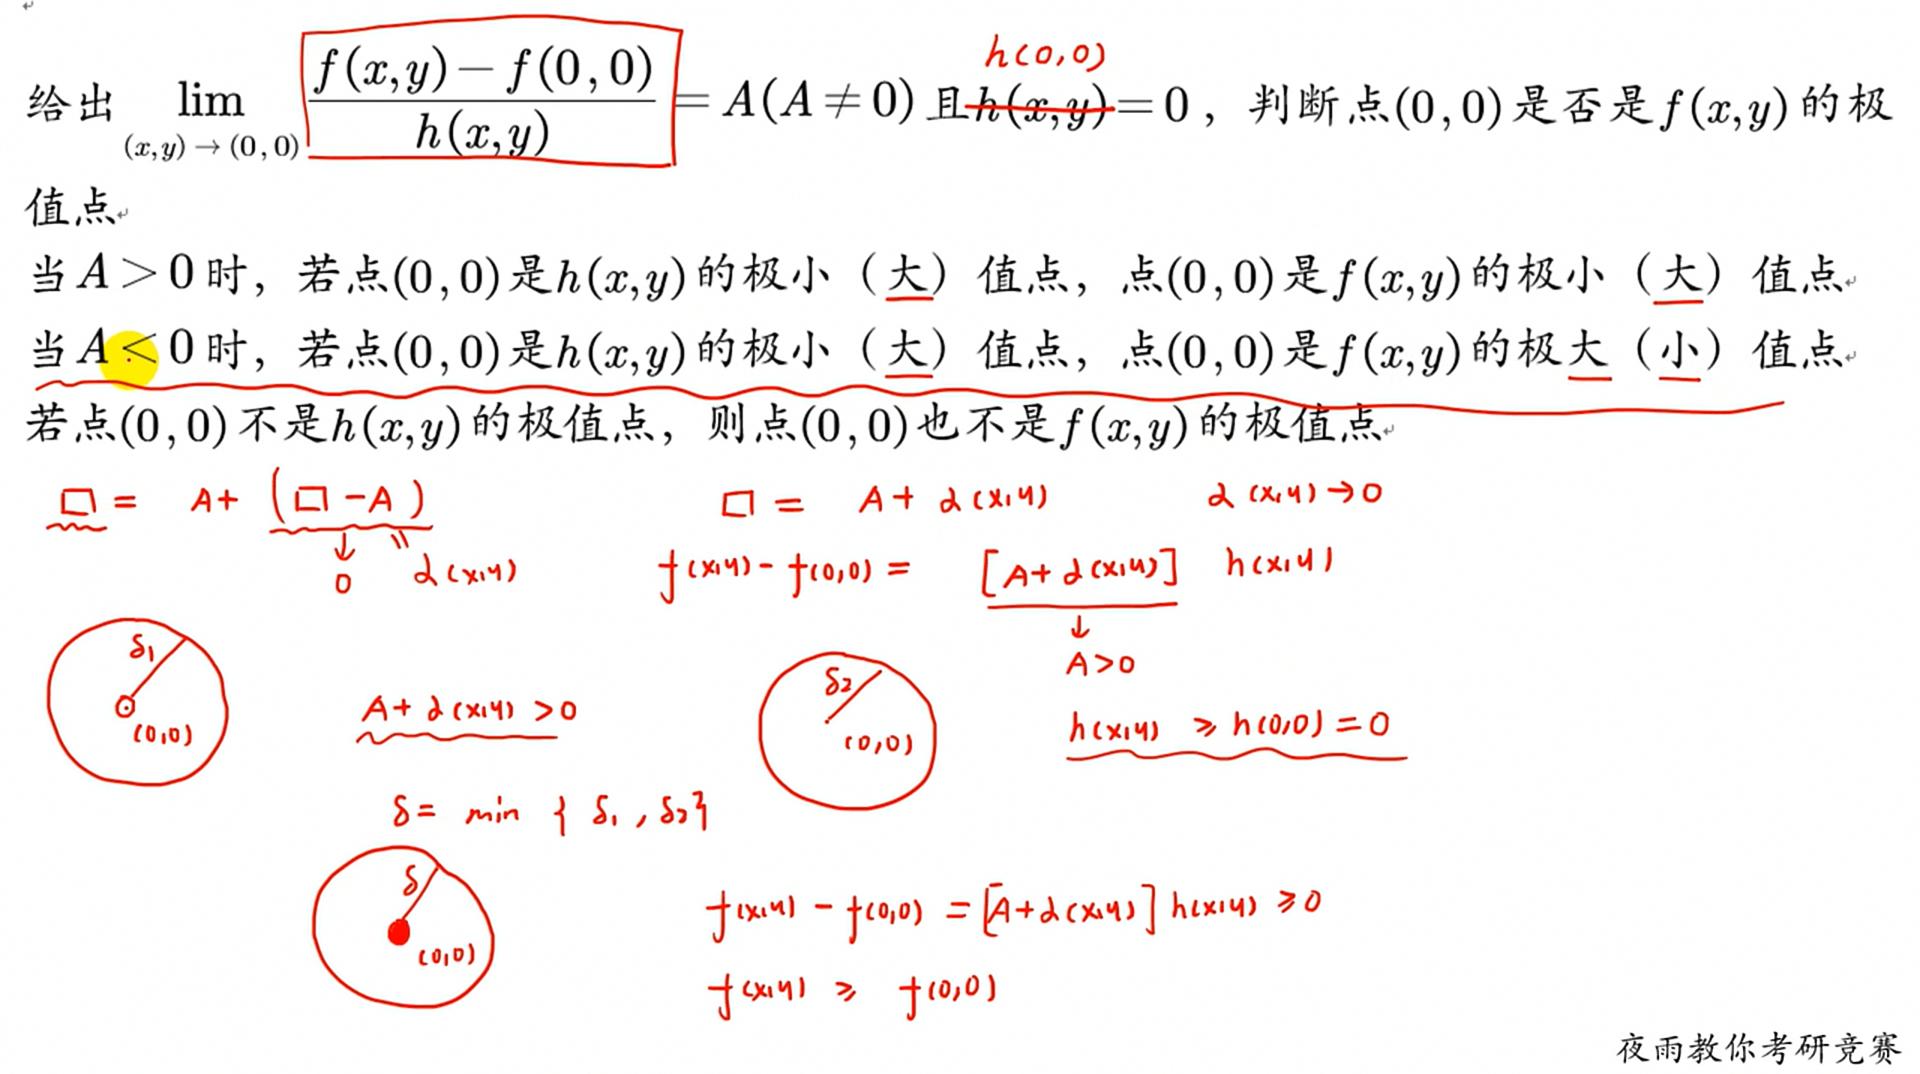 h(0,0)
给出 lim (x,y)→(0,0) f(x,y)−f(0,0) / h(x,y) = A(A≠0) 且h(x,y)=0，判断点(0,0)是否是f(x,y)的极
值点
当A>0时，若点(0,0)是h(x,y)的极小（大）值点，点(0,0)是f(x,y)的极小（大）值点
当A<0时，若点(0,0)是h(x,y)的极小（大）值点，点(0,0)是f(x,y)的极大（小）值点
若点(0,0)不是h(x,y)的极值点，则点(0,0)也不是f(x,y)的极值点
□ = A+ (□-A)
↓ 0 〃 α(x,y)
□ = A+ α(x,y) α(x,y)→0
f(x,y)- f(0,0) = [A+ α(x,y)] h(x,y)
↓
A>0
δ₁
(0,0)
A+ α(x,y) >0
δ₂
(0,0)
h(x,y) ≥ h(0,0) = 0
δ= min { δ₁ , δ₂}
δ
(0,0)
f(x,y) - f(0,0) = [A+α(x,y)] h(x,y) ≥0
f(x,y) ≥ f(0,0)
夜雨教你考研竞赛